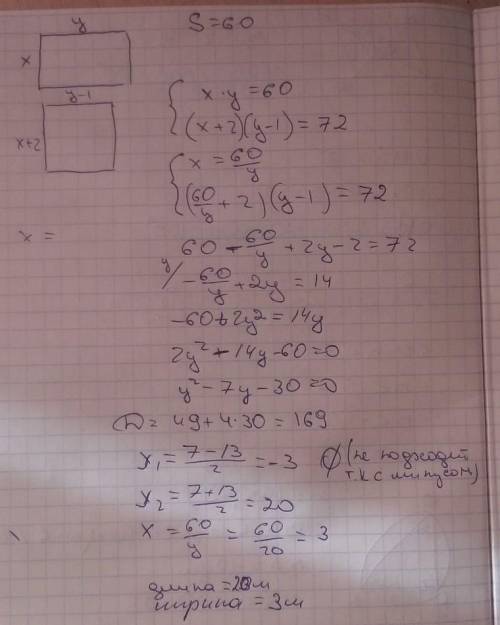 y
S=60
x
y-1
x+2
x·y=60
(x+2)(y-1)=72
x=60/y
(60/y+2)(y-1)=72
x=
60-60/y+2y-2=72
y/ -60/y+2y=14
-60+2y²=14y
2y²-14y-60=0
y²-7y-30=0
D=49+4·30=169
y₁=(7-13)/2=-3 ∅(не подходит
т.к с минусом)
y₂=(7+13)/2=20
x=60/y=60/20=3
длина=20м
ширина=3м